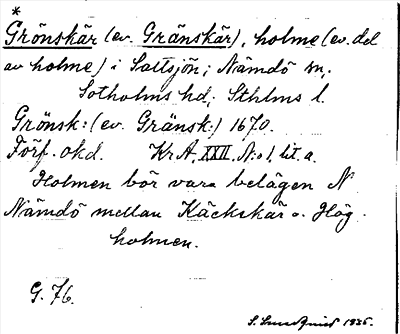 *
Grönskär (ev. Gränskär), holme (ev. del
av holme) i Saltsjön; Nämdö sn,
Sotholms hd; Sthlms l.
Grönsk: (ev. Gränsk:) 1670.
Förf. okd. Kr A, XXII. N:o 1, lit. a.
Holmen bör vara belägen N
Nämdö mellan Käckskär o. Hög-
holmen.
G. 76.
S. 1935.